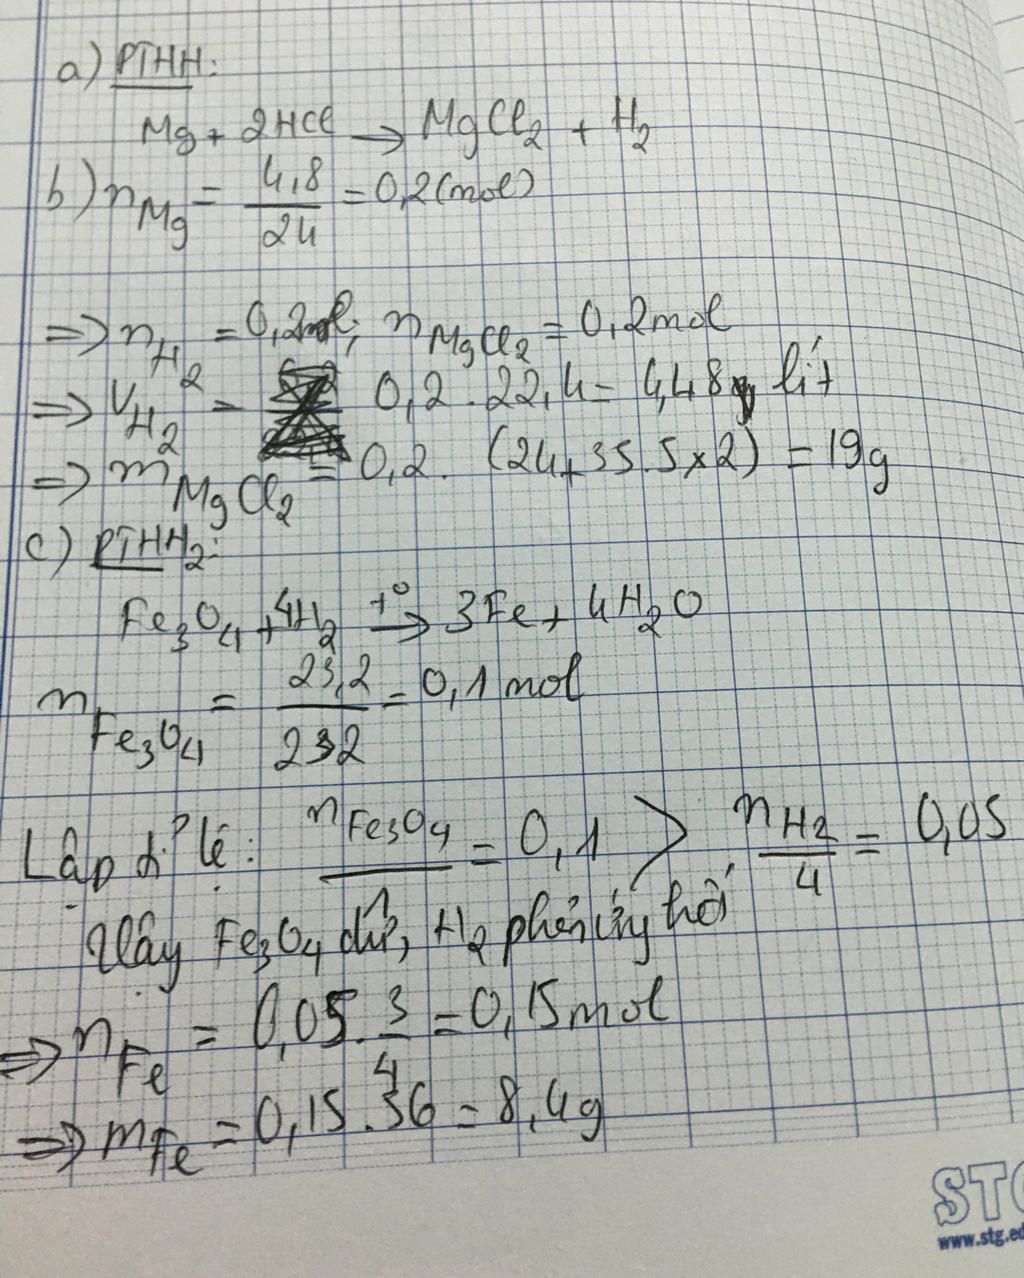 a) PTHH:
Mg + 2HCl → MgCl2 + H2
b) nMg = 4,8/24 = 0,2 (mol)
=> nH2 = 0,2mol; nMgCl2 = 0,2mol
=> VH2 = 0,2 . 22,4 = 4,48 lít
=> mMgCl2 = 0,2. (24+35.5x2) = 19g
c) PTHH2:
Fe3O4 + 4H2 t°→ 3Fe + 4H2O
nFe3O4 = 23,2/232 = 0,1 mol
Lập tỉ lệ: nFe3O4/1 = 0,1 > nH2/4 = 0,05
Vậy Fe3O4 dư, H2 phản ứng hết
=> nFe = 0,05. 3/4 = 0,15mol
=> mFe = 0,15 . 56 = 8,4g
STG
www.stg.ed